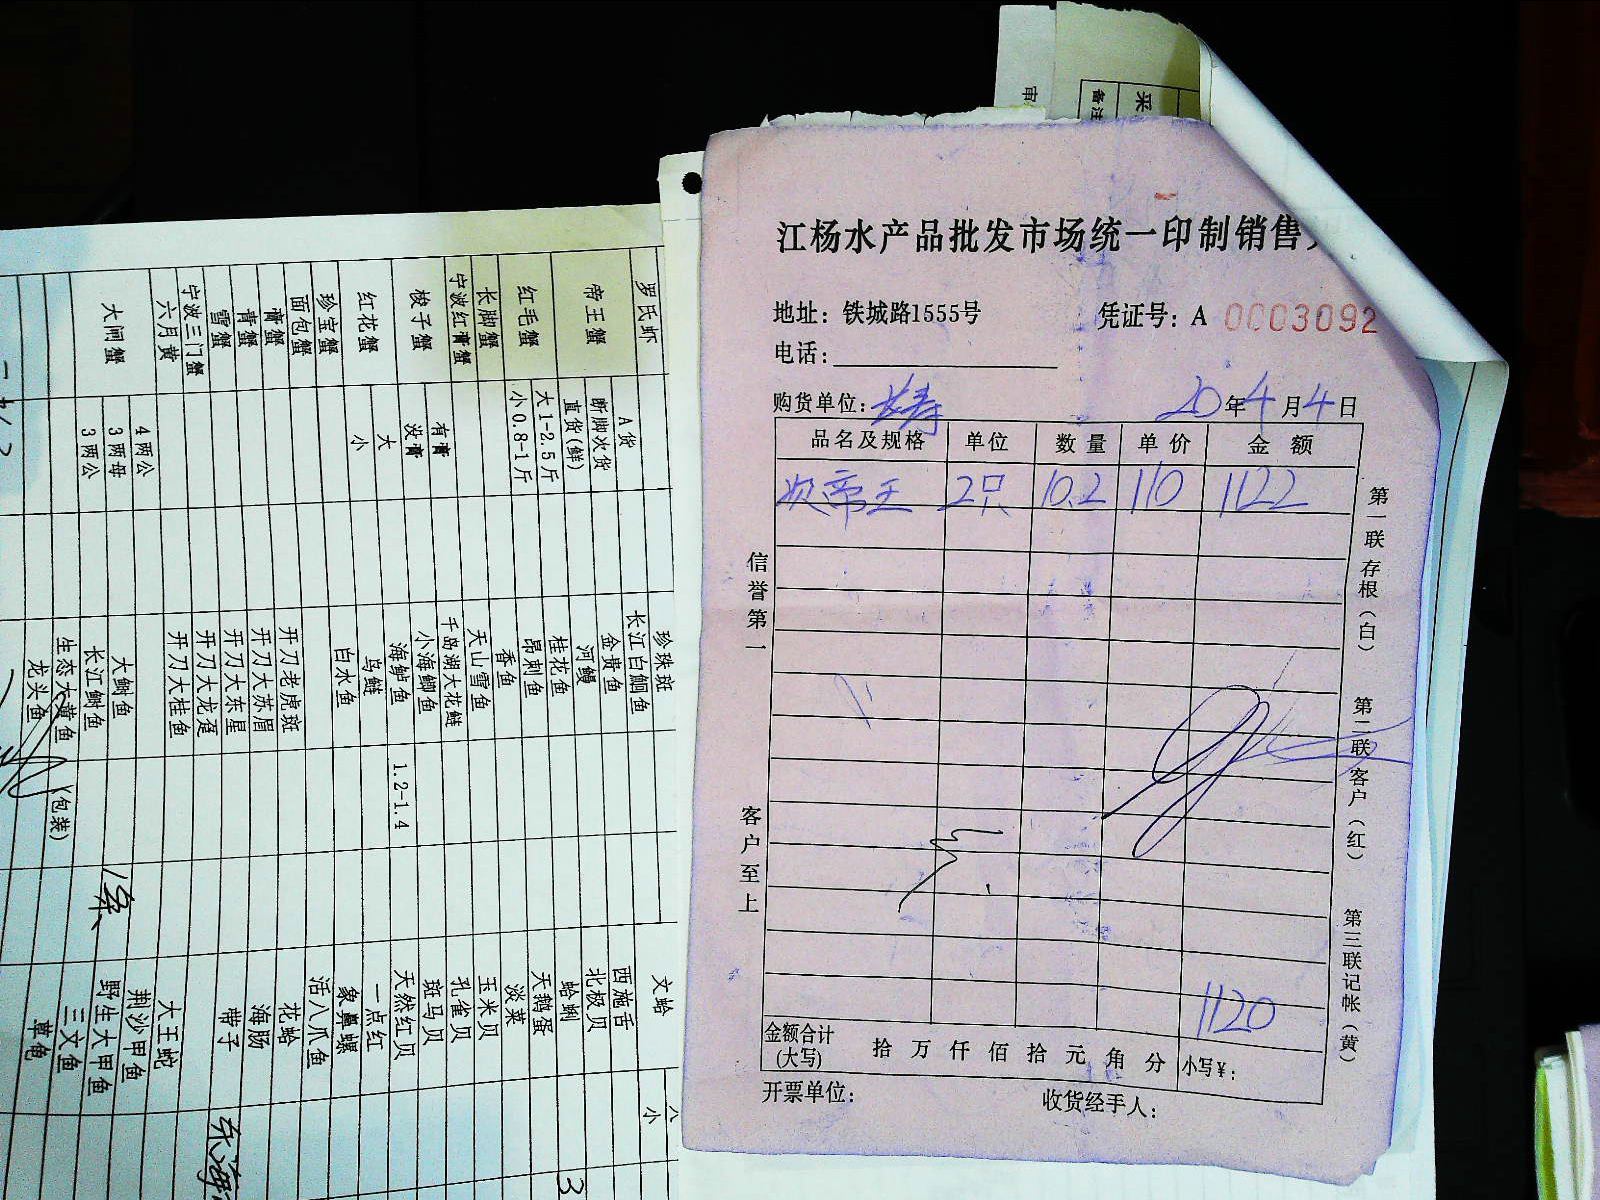 采
备注
审
江杨水产品批发市场统一印制销售
地址：铁城路1555号
凭证号：A 0003092
电话：
购货单位：长寿 20年4月4日
品名及规格 单位 数量 单价 金额
次帝王 2只 10.2 110 1122
1120
金额合计(大写) 拾 万 仟 佰 拾 元 角 分 小写¥：
开票单位： 收货经手人：
信誉第一
客户至上
第一联存根（白）
第二联客户（红）
第三联记帐（黄）
罗氏虾
帝王蟹 A货
断脚次货
直货(鲜)
红毛蟹 大1-2.5斤
小0.8-1斤
长脚蟹
宁波红膏蟹
梭子蟹 有膏
淡膏
红花蟹 大
小
珍宝蟹
面包蟹
膏蟹
青蟹
雪蟹
宁波三门蟹
六月黄
大闸蟹 4两公
3两母
3两公
珍珠斑
长江白鮰鱼
金贵鱼
河鳗
桂花鱼
昂刺鱼
香鱼
天山雪鱼
千岛湖大花鲢
小海鲫鱼
海鲈鱼 1.2-1.4
乌鲢
白水鱼
开刀老虎斑
开刀大苏眉
开刀大东星
开刀大龙趸
开刀大桂鱼
大鲥鱼
长江鲥鱼
生态大黄鱼 (包装)
龙头鱼
文蛤
西施舌
北极贝
蛤蜊
天鹅蛋
淡菜
玉米贝
孔雀贝
斑马贝
天然红贝
一点红
象鼻螺
活八爪鱼
花蛤
海肠
带子
大王蛇
荆沙甲鱼
野生大甲鱼
三文鱼
草龟
八
小
3